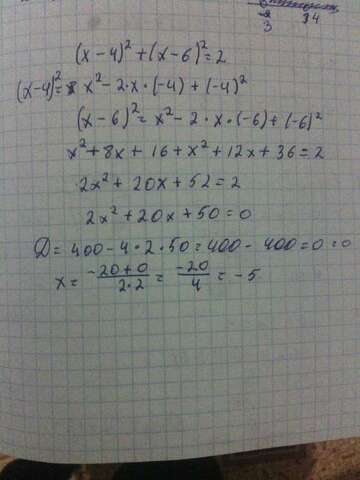 2
3 34
(x-4)²+(x-6)²=2
(x-4)²= x²-2·x·(-4)+(-4)²
(x-6)²=x²-2·x·(-6)+(-6)²
x²+8x+16+x²+12x+36=2
2x²+20x+52=2
2x²+20x+50=0
D=400-4·2·50=400-400=0=0
x= -20+0/2·2 = -20/4 = -5